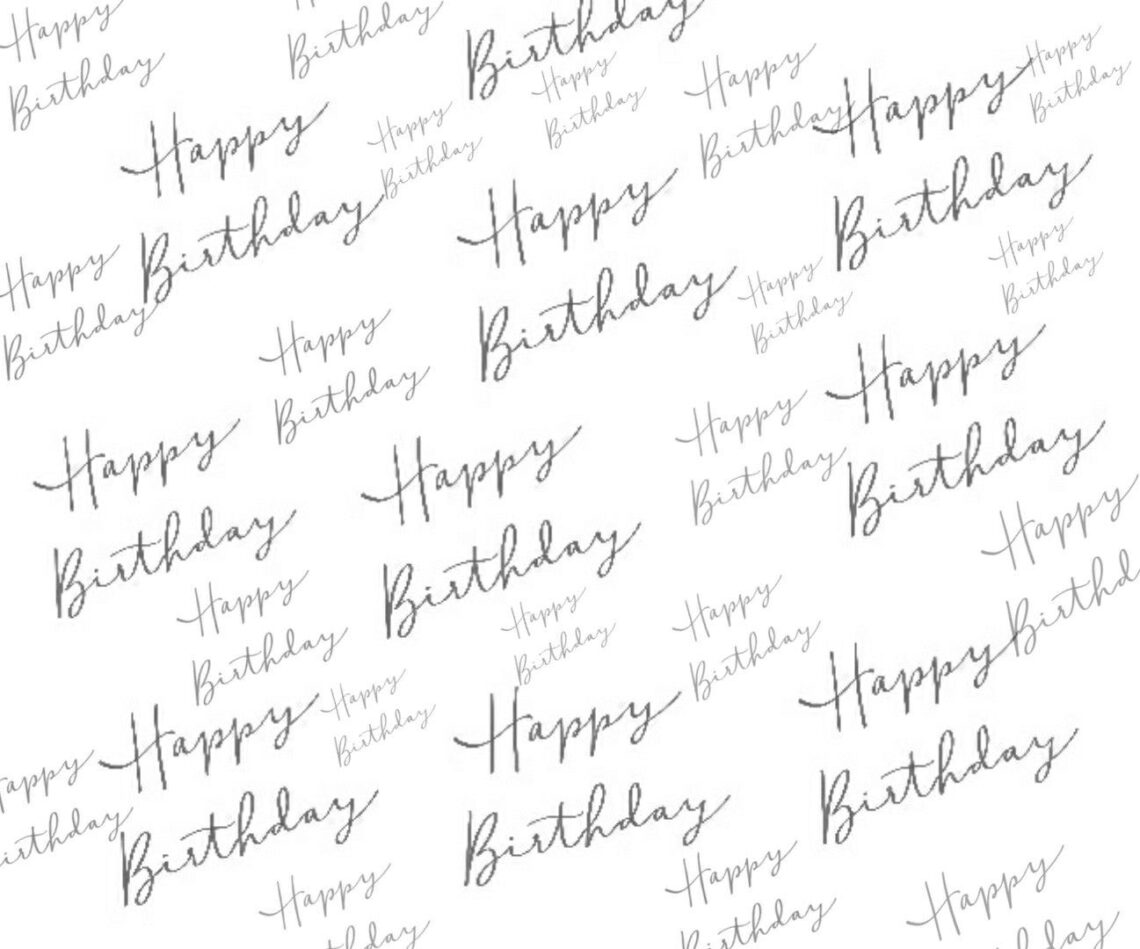 Happy
Birthday
Birthday
Birthday
Happy
Birthday
Happy
Birthday
Happy
Birthday
Happy
Birthday
Happy
Birthday
Happy
Birthday
Happy
Birthday
Happy
Birthday
Happy
Birthday
Happy
Birthday
Happy
Birthday
Happy
Birthday
Happy
Birthday
Happy
Birthday
Happy
Birthday
Happy
Birthd
Happy
Birthday
Happy
Birthday
Happy
Birthday
Happy
Birthday
Happy
Birthday
Happy
Birthday
Happy
Birthday
appy
irthday
Happy
thday
Happy
Birthday
Happy
day